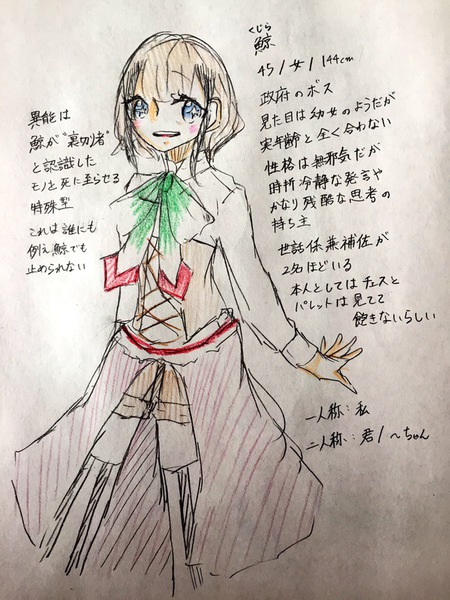 くじら
鯨
45/女/144cm
政府のボス
見た目は幼女のようだが
実年齢と全く合わない
性格は無邪気だが
時折冷静な発言や
かなり残酷な思考の
持ち主
世話係兼補佐が
2名ほどいる
本人としてはチェスと
パレットは見てて
飽きないらしい
一人称:私
二人称:君/〜ちゃん
異能は
鯨が"裏切者"
と認識した
モノを死に至らせる
特殊型
これは誰にも
例え鯨でも
止められない